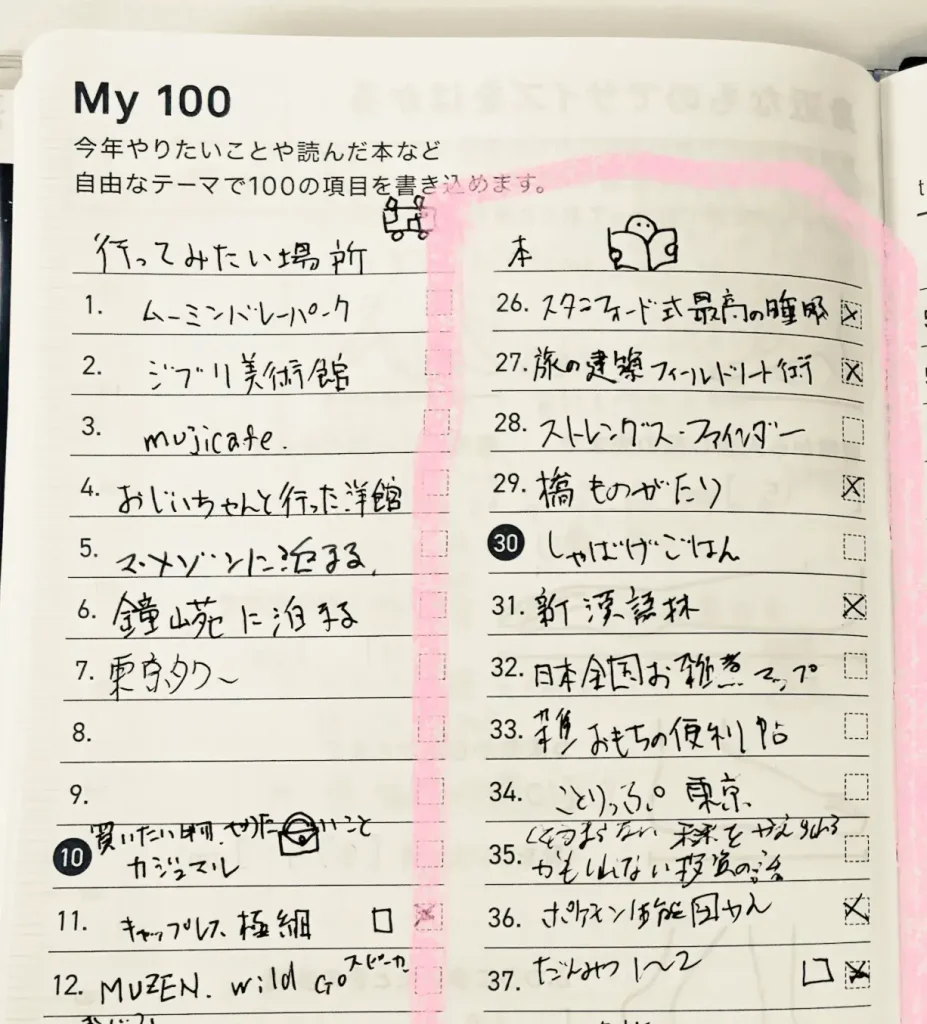 My 100
今年やりたいことや読んだ本など
自由なテーマで100の項目を書き込めます。
行ってみたい場所
1. ムーミンバレーパーク
2. ジブリ美術館
3. mujicafe.
4. おじいちゃんと行った洋館
5. マ・メゾンに泊まる.
6. 鐘山苑に泊まる
7. 東京タワ〜
8.
9.
買いたい やりたいこと
10 ガジュマル
11. キャップレス 極細
12. MUZEN. wild Go スピーカ
本
26. スタンフォード式最高の睡眠
27. 旅の建築フィールドノート術
28. ストレングス・ファインダー
29. 橋ものがたり
30 しゃばけごはん
31. 新漢語林
32. 日本全国お雑煮マップ
33. おもちの便利帖
34. ことりっぷ 東京
35. くそつまらない未来を変えられる
かもしれない投資の話
36. ポケモン 図かん
37. だんみつ 1〜2